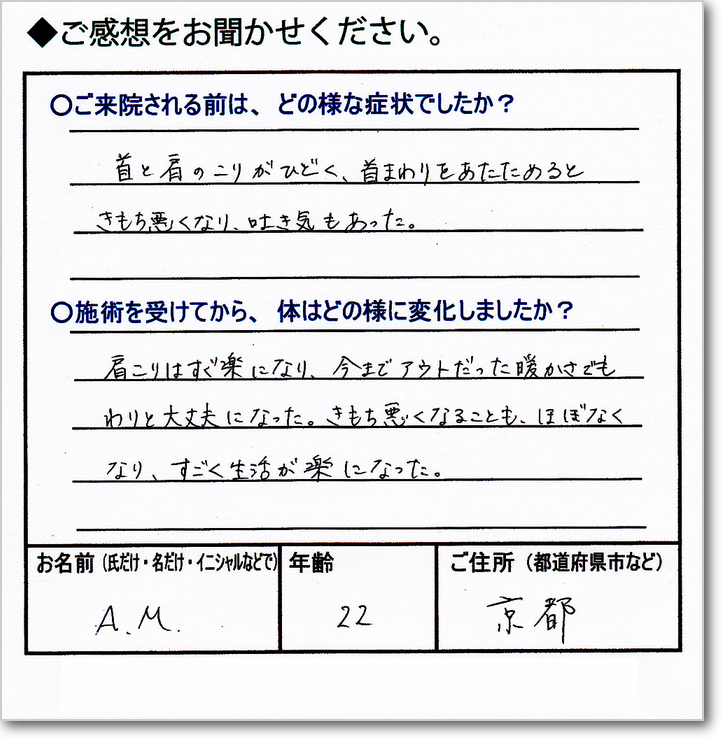 ◆ご感想をお聞かせください。
〇ご来院される前は、どの様な症状でしたか？
首と肩のこりがひどく、首まわりをあたためると
きもち悪くなり、吐き気もあった。
〇施術を受けてから、体はどの様に変化しましたか？
肩こりはすぐ楽になり、今までアウトだった暖かさでも
わりと大丈夫になった。きもち悪くなることも、ほぼなく
なり、すごく生活が楽になった。
お名前（氏だけ・名だけ・イニシャルなどで） 年齢 ご住所（都道府県市など）
A.M. 22 京都